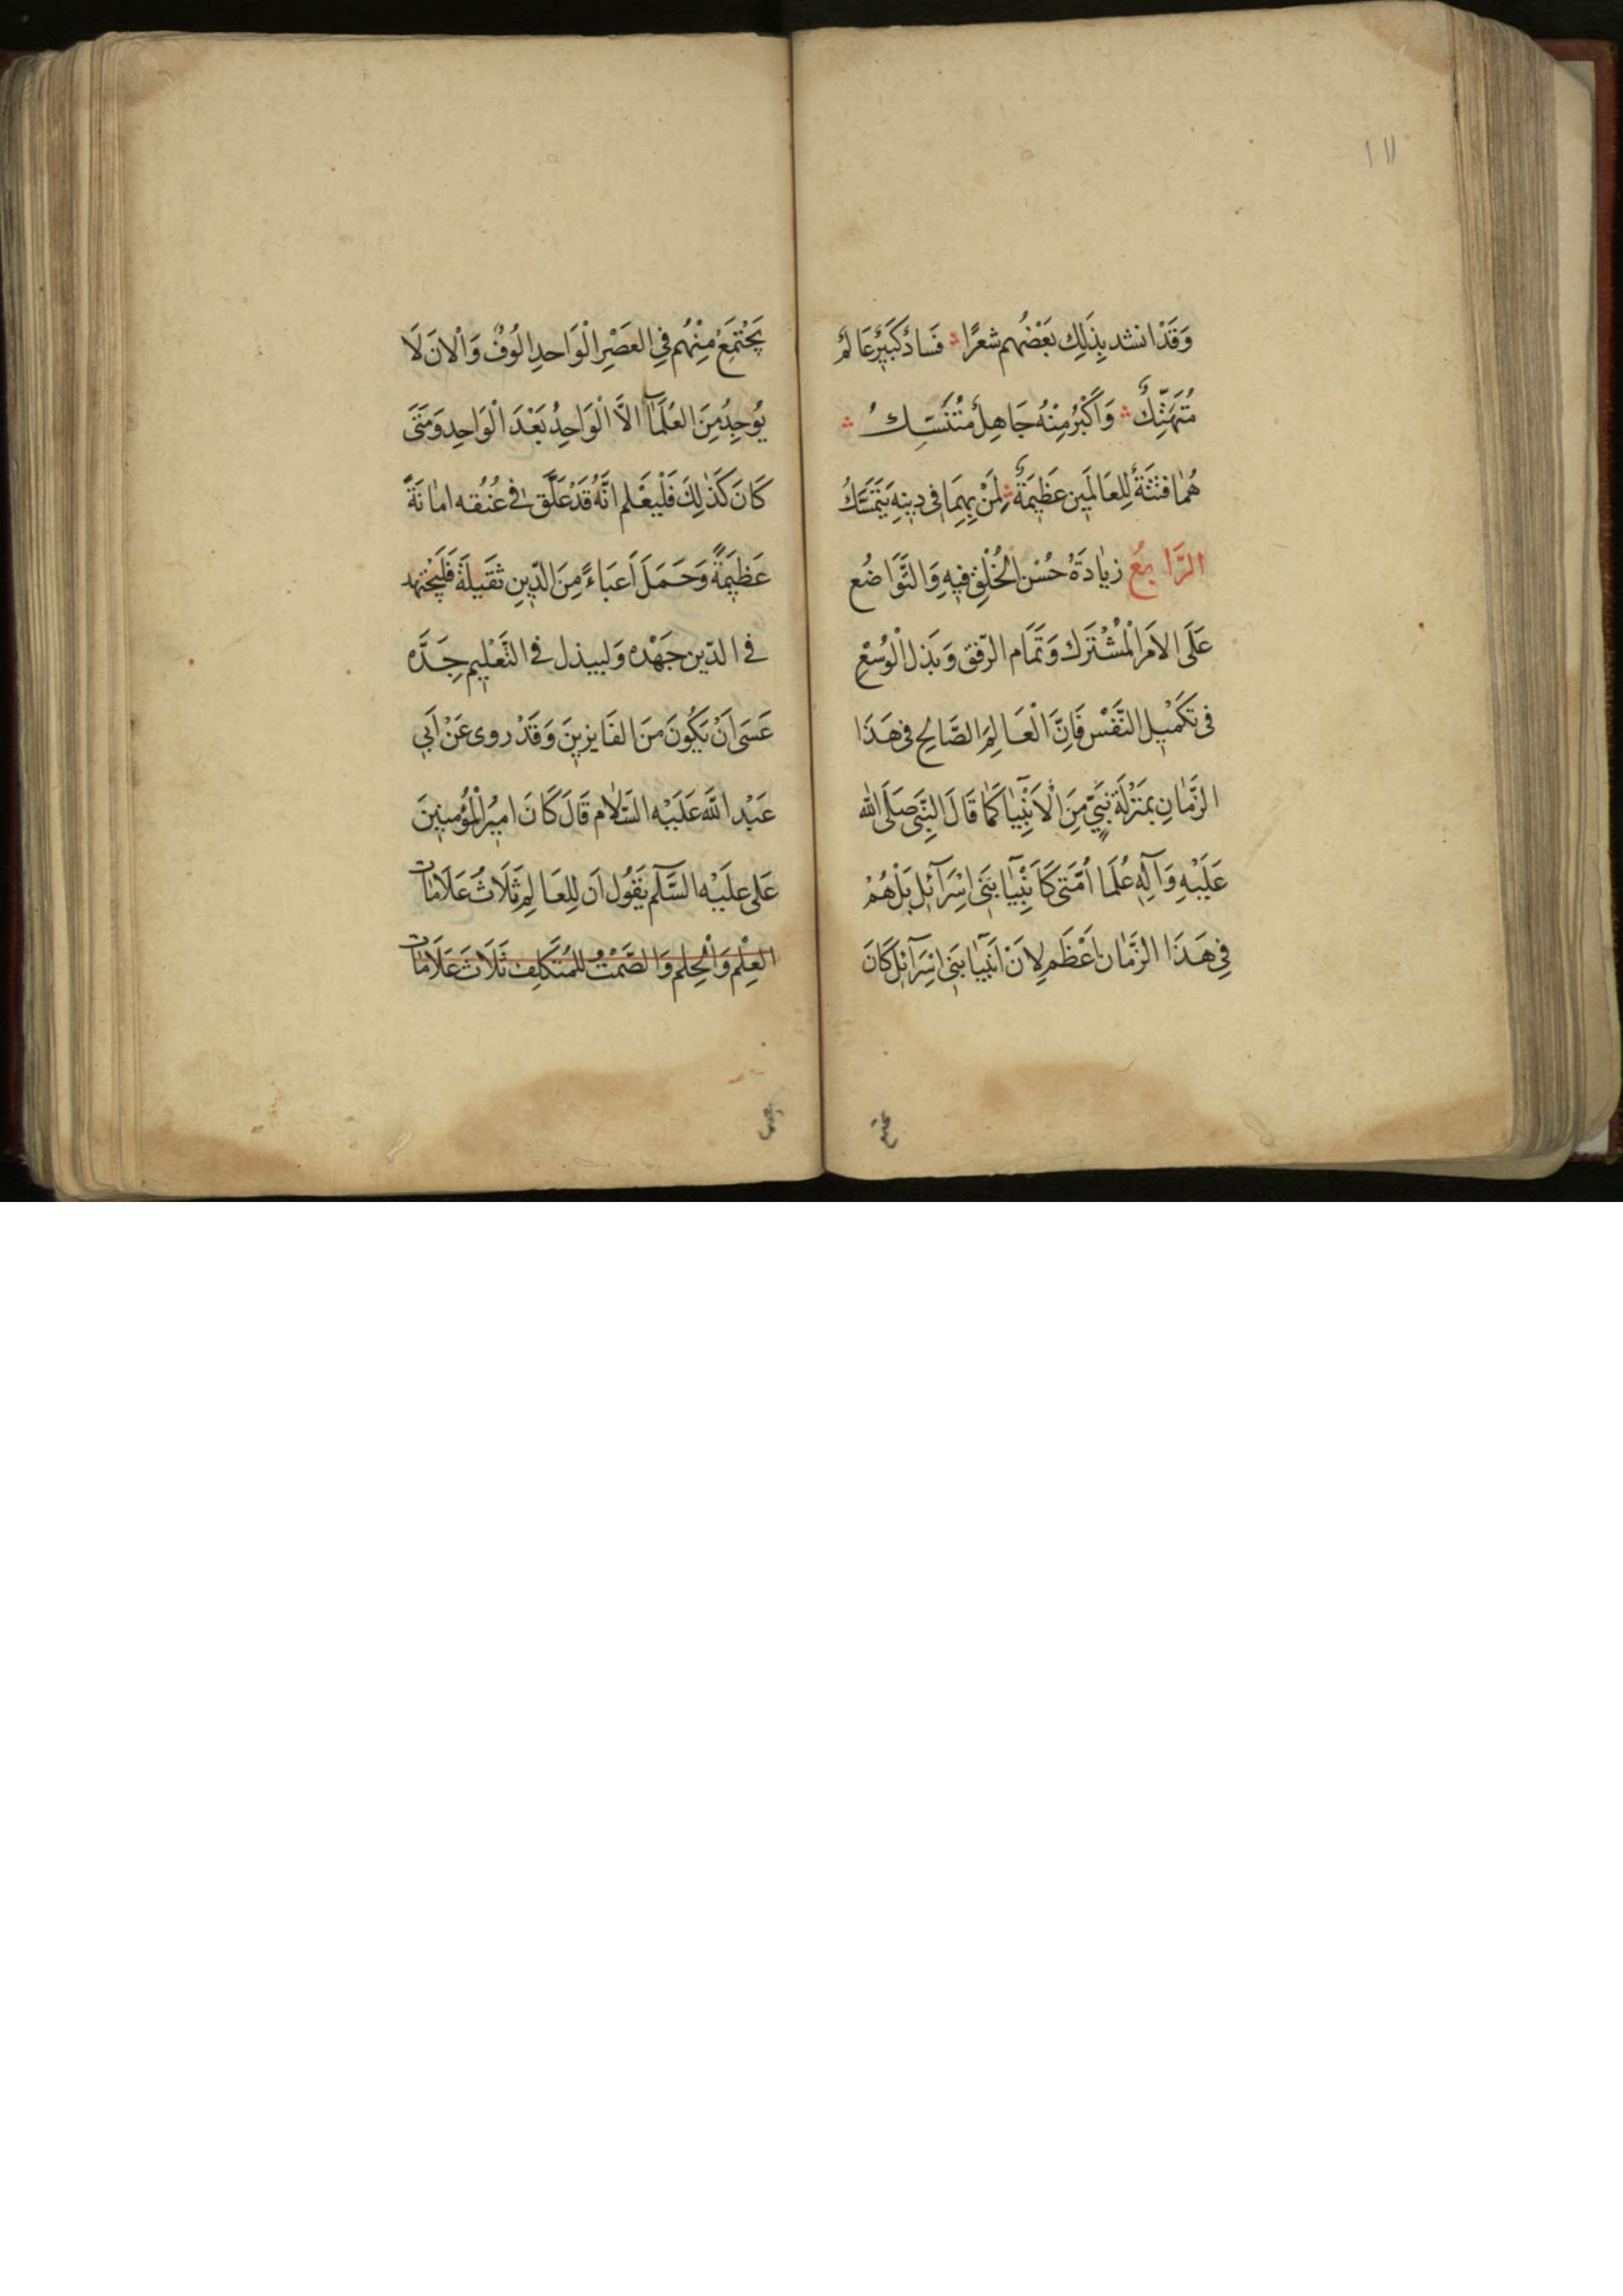 ١١١
وَقَدْ انشد بِذَلِكَ بَعْضُهُم شعرًا فَسَادٌ كَبِيرٌ عَالِمٌ
مُتَهَتِّكٌ وَاَكْبَرُ مِنْهُ جَاهِلٌ مُتَنَسِّكُ
هُمَا فتْنَةٌ لِلعَالَمِين عَظِيمَةٌ لِمَنْ بِهِمَا فى دِينِهِ يَتَمَسَّكُ
الرَّابِعُ زيَادَةُ حُسْن الخُلْقِ فيهِ وَالتَّوَاضُع
عَلَى الاَمَر الْمُشْتَرَك وَتَمَام الرّفق وَبَذل الْوُسْعِ
فى تَكمْيل النَّفْس فَاِنَّ الْعَالِمَ الصَّالِح فى هَذَا
الزَّمَانِ بِمَنْزلَةِ نَبِىٍّ مِنَ الْاَنْبِيَا كَمَا قَالَ النَّبِى صَلَى الله
عَلَيْهِ وَآلِهِ عُلَمَا اُمَّتى كَاَنْبِيَآ بَنى اسْرَآئِل بَلْ هُمْ
فِى هَذَا الزَّمَان اَعْظَم لِاَنَ اَنبيَآ بَنى اسِرَآئل كَانَ
يجتمع
يَجْتَمِعُ مِنْهُم فِى العَصْرِ الْوَاحدِ الُوُفٌ وَالْانَ لَا
يُوجدُ مِنَ العُلَمَآ الاَّ الْوَاحِدُ بَعْدَ الْوَاحِدِ وَمَتَى
كَانَ كَذَلِكَ فَلْيَعْلم انَّهُ قَدْ عَلَّق فى عُنُقه امانَةً
عَظيَمةً وَحَمَلَ اَعبَاءً مِنَ الدّينِ ثقَيلَةً فَليَجْتهد
فى الدّين جَهْدَه وَليبذل فى التَّعْليم جِدَّه
عَسَى اَنْ يَكُونَ مَنَ الفَايزينَ وَقَدْ روى عَنْ اَبى
عَبْد اللَّه عَلَيْه السَّلام قَالَ كَانَ اميُر الْمُؤمِنينَ
عَلى عليَه السَّلم يَقُول اَن لِلعَالِم ثَلَاثُ عَلَامَات
العِلْم وَالْحِلم وَالصَّمْتُ للمُتَكلِف ثَلَاثَ عَلَامَات